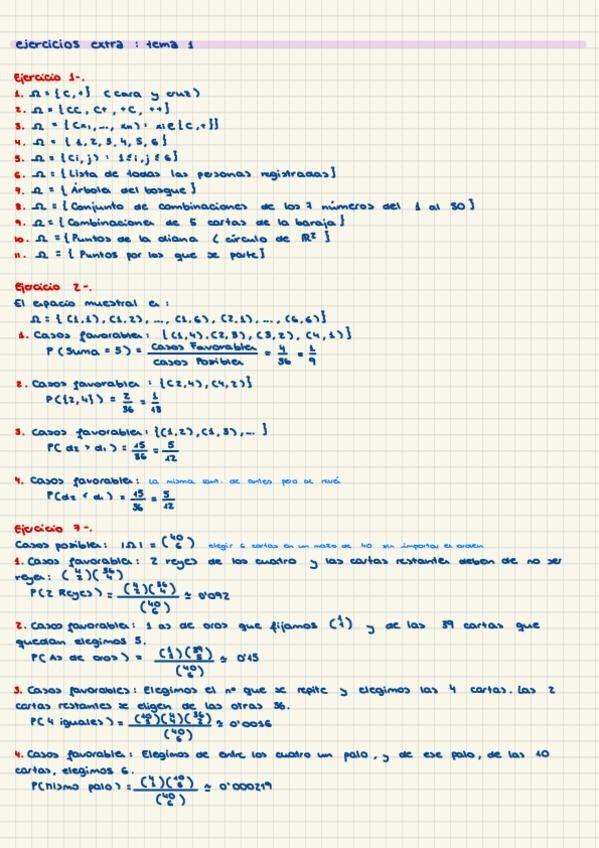 ejercicios extra : tema 1
Ejercicio 1-.
1. Ω = {C,+} (cara y cruz)
2. Ω = {CC, C+, +C, ++}
3. Ω = {(x₁,..., xₙ) : xᵢ ∈ {C,+}}
4. Ω = {1,2,3,4,5,6}
5. Ω = {(i,j) : 1≤i,j≤6}
6. Ω = {Lista de todas las personas registradas}
7. Ω = {Árboles del bosque}
8. Ω = {Conjunto de combinaciones de los 7 números del 1 al 50}
9. Ω = {Combinaciones de 5 cartas de la baraja}
10. Ω = {Puntos de la diana (círculo de ℝ² }
11. Ω = { Puntos por los que se parte}
Ejercicio 2-.
El espacio muestral es :
Ω = {(1,1), (1,2), ..., (1,6), (2,1), ..., (6,6)}
1. Casos favorables: {(1,4),(2,3),(3,2),(4,1)}
P(Suma = 5) = Casos Favorables / Casos Posibles = 4/36 = 1/9
2. Casos favorables : {(2,4),(4,2)}
P({2,4}) = 2/36 = 1/18
3. Casos favorables: {(1,2),(1,3),... }
P(d₂ > d₁) = 15/36 = 5/12
4. Casos favorables: la misma cant. de antes pero al revés
P(d₂ < d₁) = 15/36 = 5/12
Ejercicio 7-.
Casos posibles: |Ω| = (40 6) elegir 6 cartas en un mazo de 40 sin importar el orden
1. Casos favorables: 2 reyes de los cuatro y las cartas restantes deben de no ser
reyes: (4 2)(36 4)
P(2 Reyes) = (4 2)(36 4) / (40 6) ≅ 0'092
2. Casos favorables: 1 as de oros que fijamos (1 1) y de las 39 cartas que
quedan elegimos 5.
P(As de oros) = (1 1)(39 5) / (40 6) ≅ 0'15
3. Casos favorables: Elegimos el nº que se repite y elegimos las 4 cartas. Las 2
cartas restantes se eligen de las otras 36.
P(4 iguales) = (10 1)(4 4)(36 2) / (40 6) ≅ 0'0016
4. Casos favorables: Elegimos de entre los cuatro un palo, y de ese palo, de las 10
cartas, elegimos 6.
P(mismo palo) = (4 1)(10 6) / (40 6) ≅ 0'000219